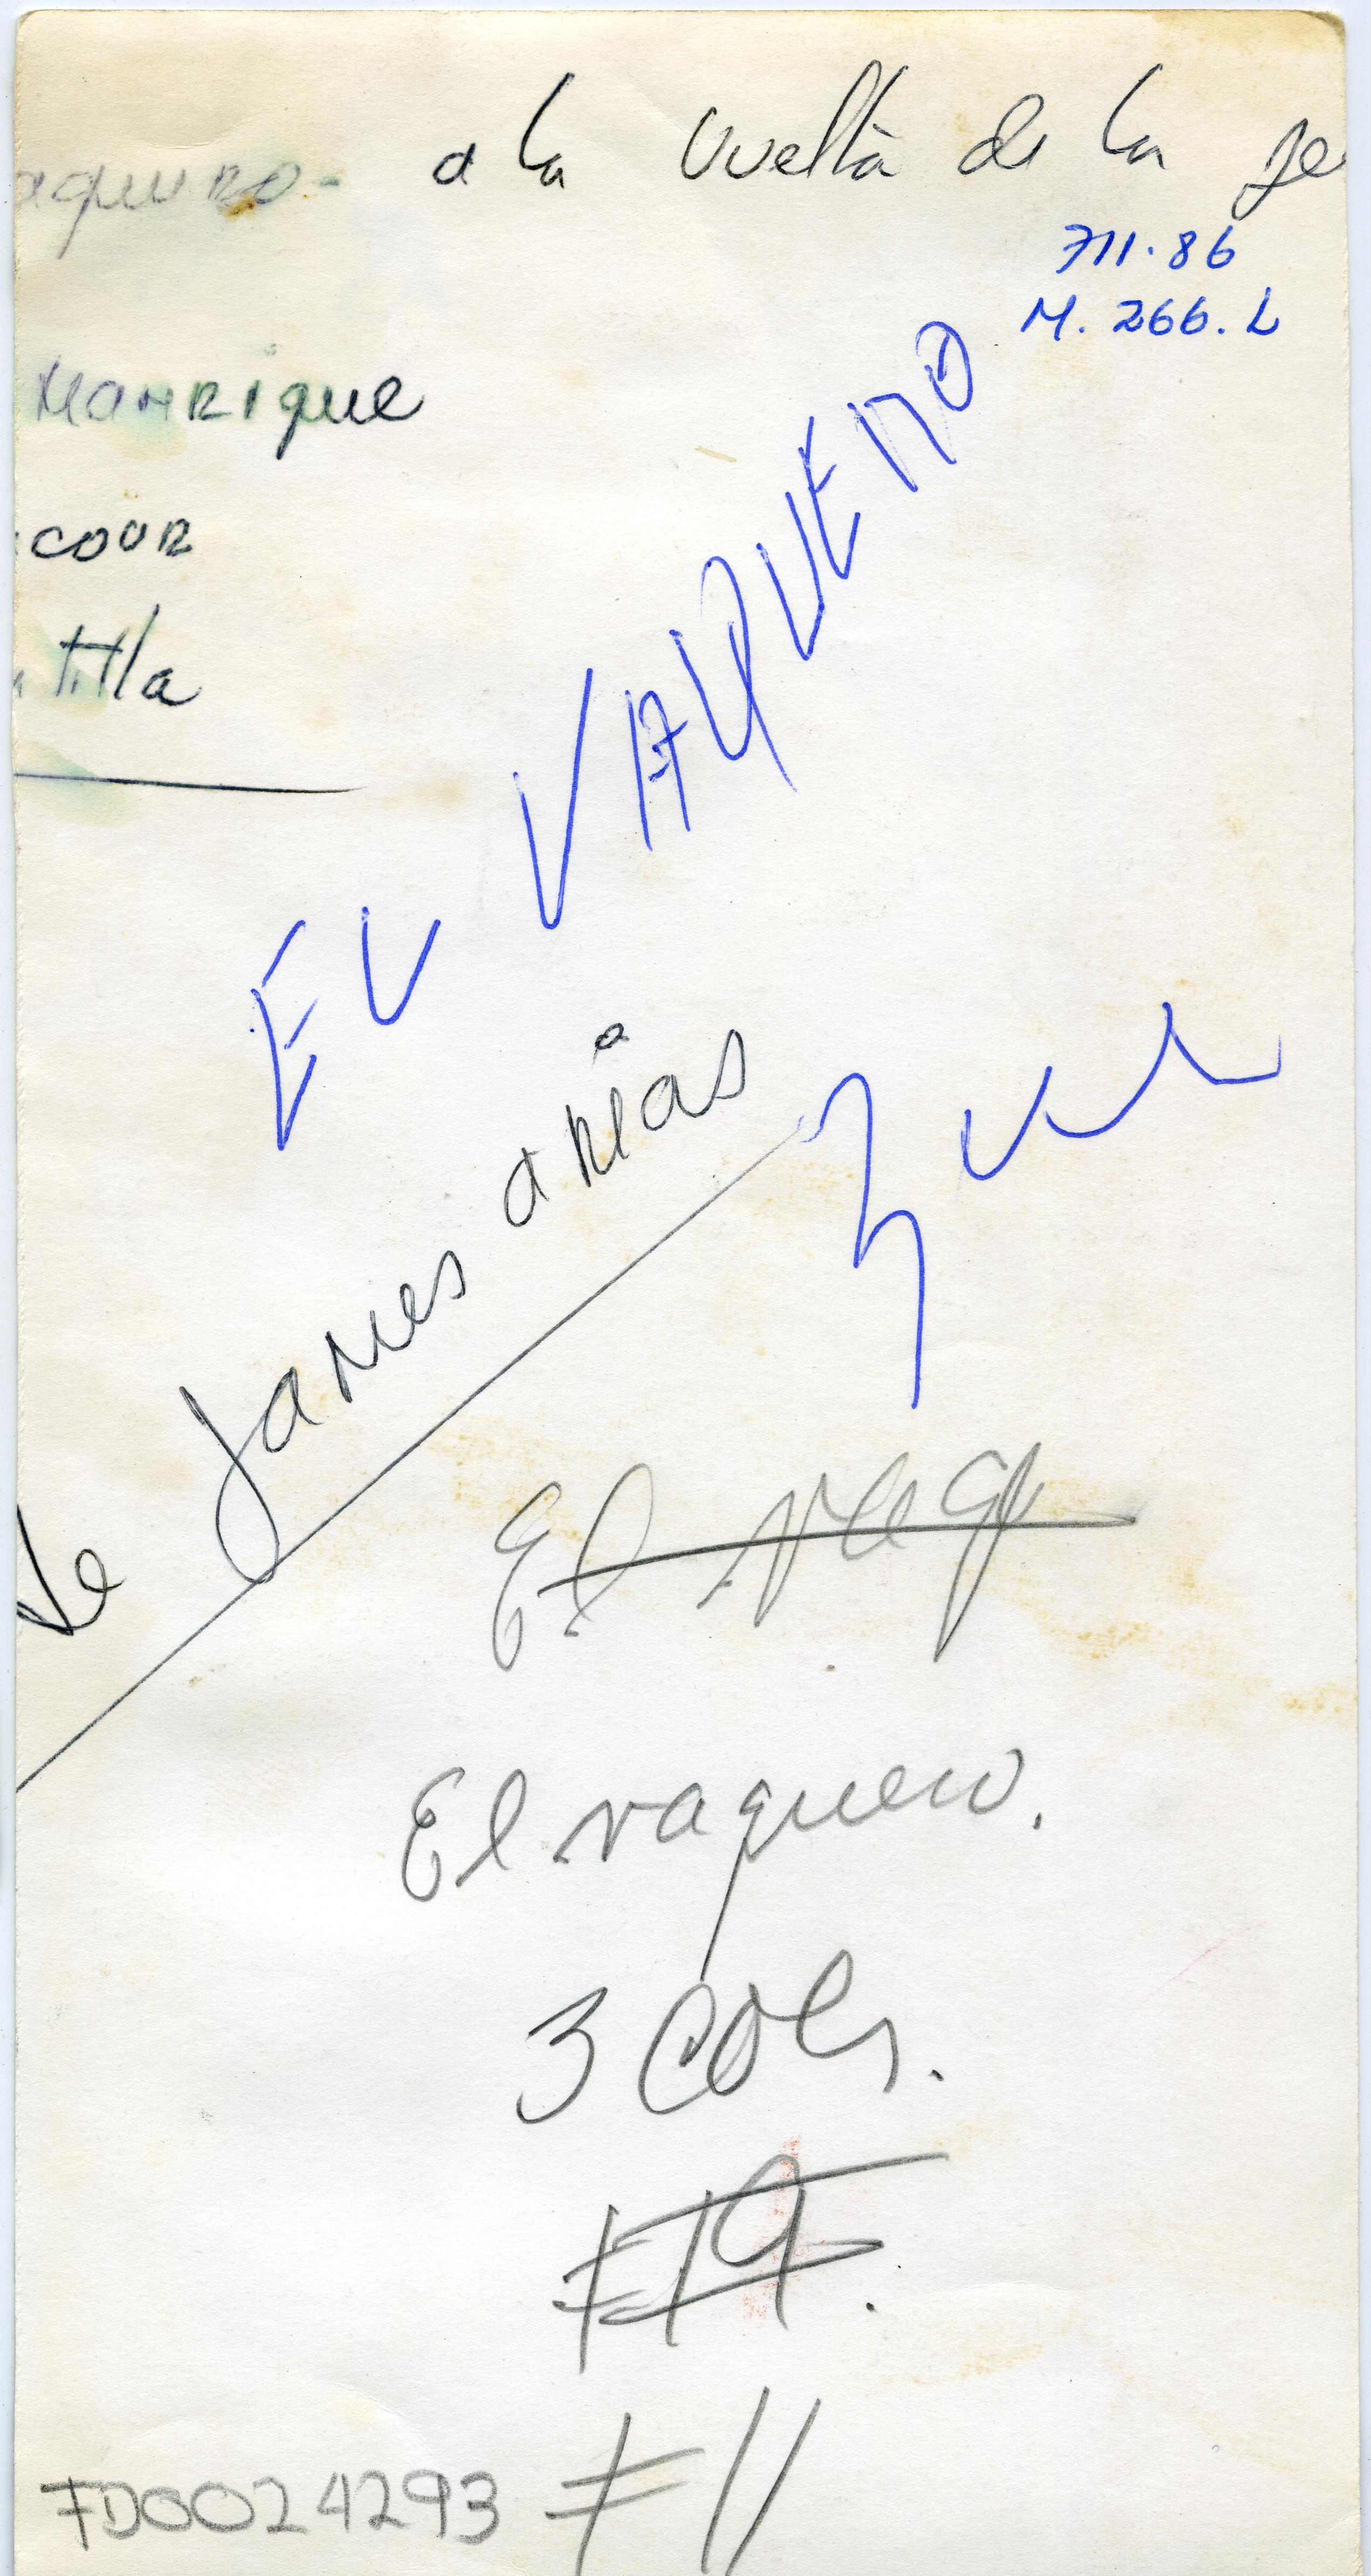 aquero- a la vuelta de la
711.86
M. 266. L
Manrique
cour
tilla
EL VAQUERO
de James arias
El
El vaquero.
3 Cols.
#19.
#11
FD0024293